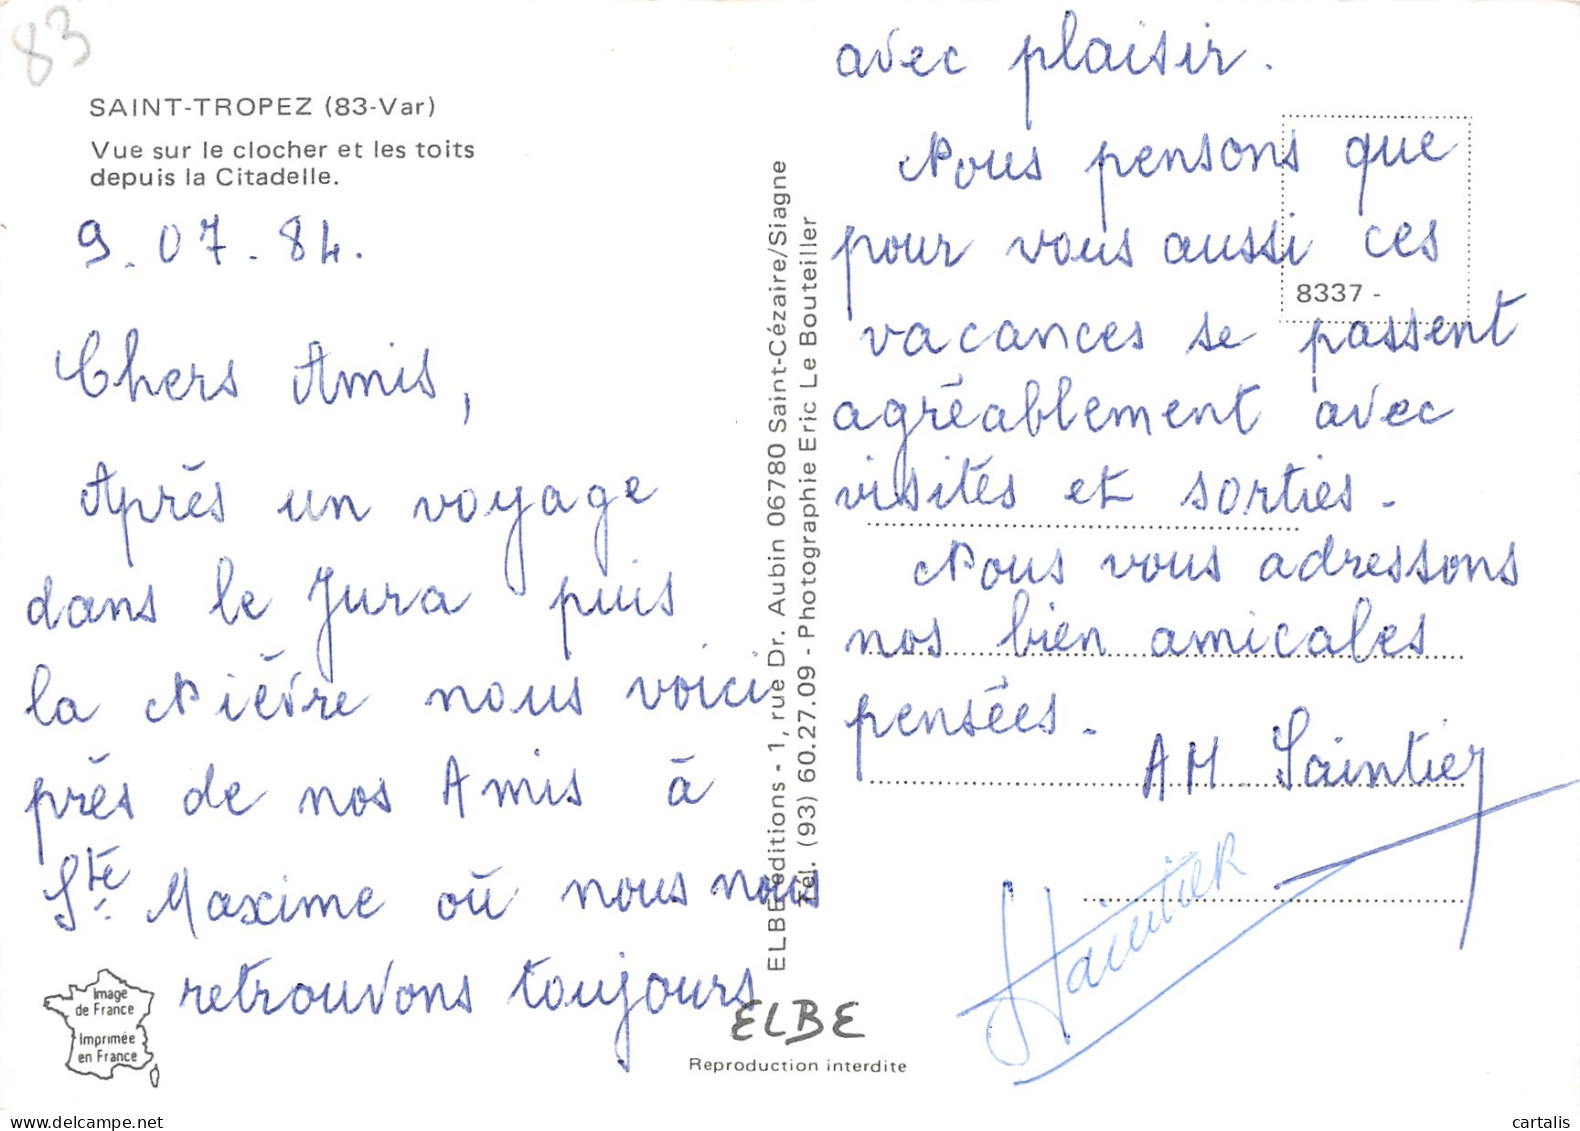 83
SAINT-TROPEZ (83-Var)
Vue sur le clocher et les toits
depuis la Citadelle.
9.07.84.
Chers Amis,
Après un voyage
dans le Jura puis
la Nièvre nous voici
près de nos Amis à
Ste Maxime où nous nous
retrouvons toujours
avec plaisir.
Nous pensons que
pour vous aussi ces
vacances se passent
agréablement avec
visites et sorties.
Nous vous adressons
nos bien amicales
pensées.
AM Saintier
Saintier
8337 -
ELBE éditions - 1, rue Dr. Aubin 06780 Saint-Cézaire/Siagne
Tel. (93) 60.27.09 - Photographie Eric Le Bouteiller
Image
de France
Imprimée
en France
ELBE
Reproduction interdite
cartalis